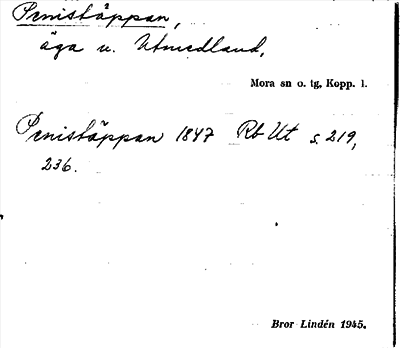 Penistäppan,
äga u. Utmedland,
Mora sn o. tg, Kopp. l.
Penistäppan 1847 Rb Ut s. 219,
236.
Bror Lindén 1945.